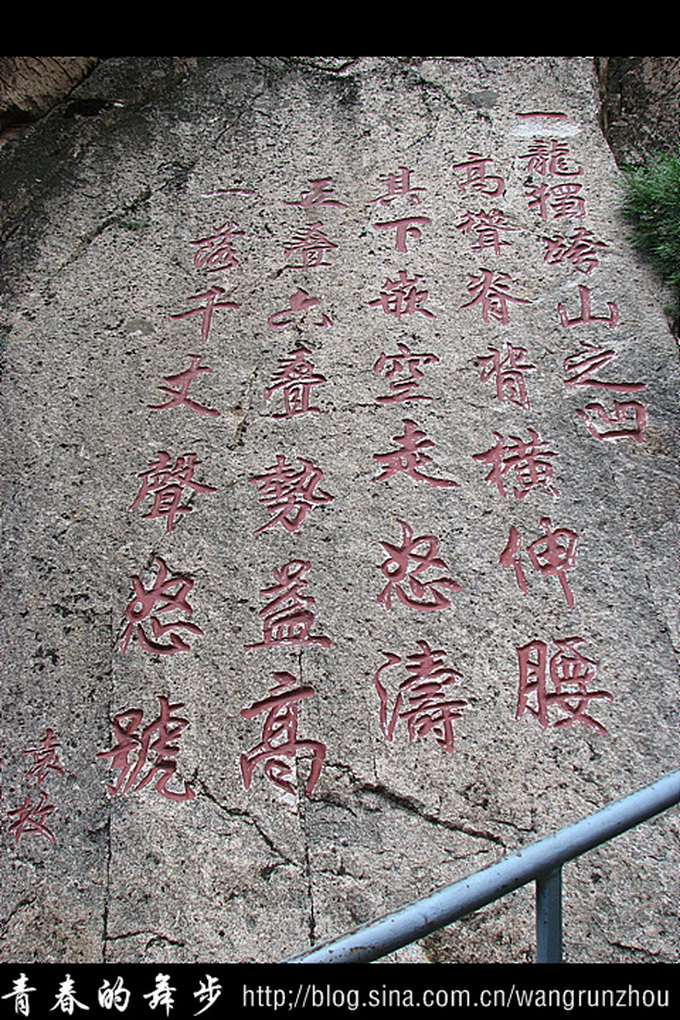 一龍獨跨山之凹
高聳脊背橫伸腰
其下嵌空走怒濤
五疊六疊勢益高
一落千丈聲怒號
袁枚
青春的舞步 http://blog.sina.com.cn/wangrunzhou